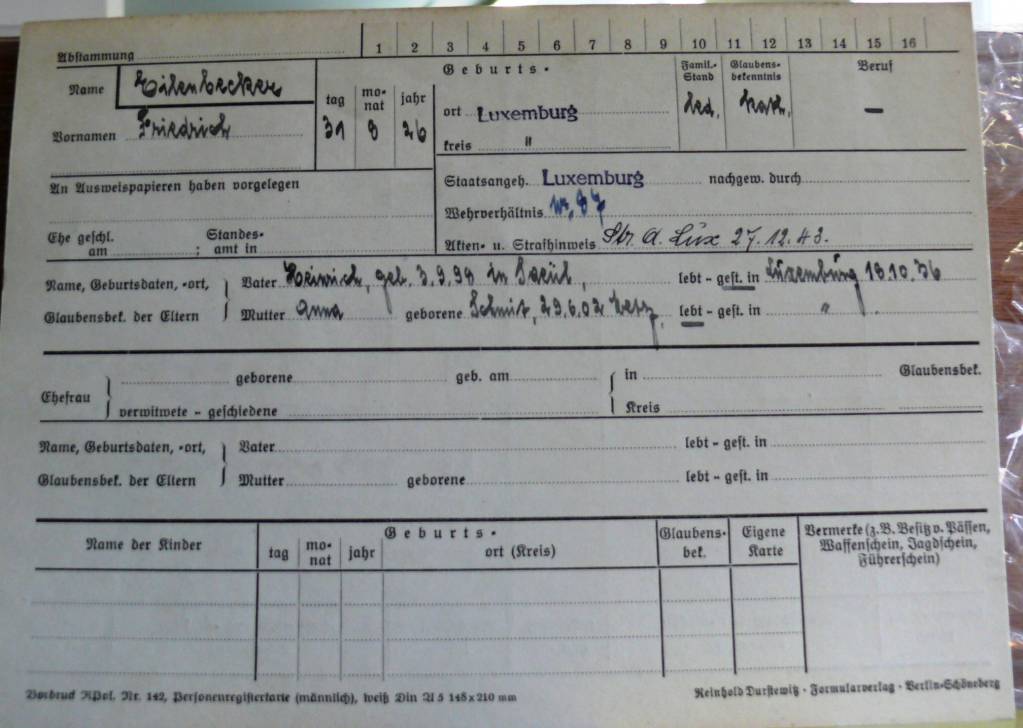 Abstammung 1 2 3 4 5 6 7 8 9 10 11 12 13 14 15 16
Name Eilenbecker
Vornamen Friedrich
tag monat jahr
31 8 26
Geburts-
ort Luxemburg
kreis "
Famil.-Stand led.
Glaubensbekenntnis kath.
Beruf —
An Ausweispapieren haben vorgelegen
Staatsangeh. Luxemburg nachgew. durch
Wehrverhältnis
Ehe geschl. am ; Standesamt in
Akten- u. Strafhinweis Str. A. Lux 27.12.43.
Name, Geburtsdaten, -ort, Vater Heinrich, geb. 3.9.98 in lebt - gest. in Luxemburg 18.10.36
Glaubensbek. der Eltern Mutter Anna geborene Schmit, 29.6.02 lebt - gest. in "
Ehefrau geborene geb. am in Glaubensbek.
verwitwete - geschiedene Kreis
Name, Geburtsdaten, -ort, Vater lebt - gest. in
Glaubensbek. der Eltern Mutter geborene lebt - gest. in
Name der Kinder
Geburts-
tag monat jahr ort (Kreis)
Glaubensbek.
Eigene Karte
Vermerke (z.B. Besitz v. Pässen,
Waffenschein, Jagdschein,
Führerschein)
Vordruck RPol. Nr. 142, Personenregisterkarte (männlich), weiß Din A 5 148 x 210 mm
Reinhold Durstewitz · Formularverlag · Berlin-Schöneberg